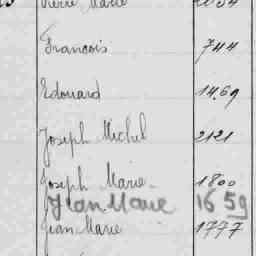 Pierre Marie 2034
François 744
Edouard 1469
Joseph Michel 2121
Joseph Marie 1800
Jean Marie 1659
Jean Marie 1777